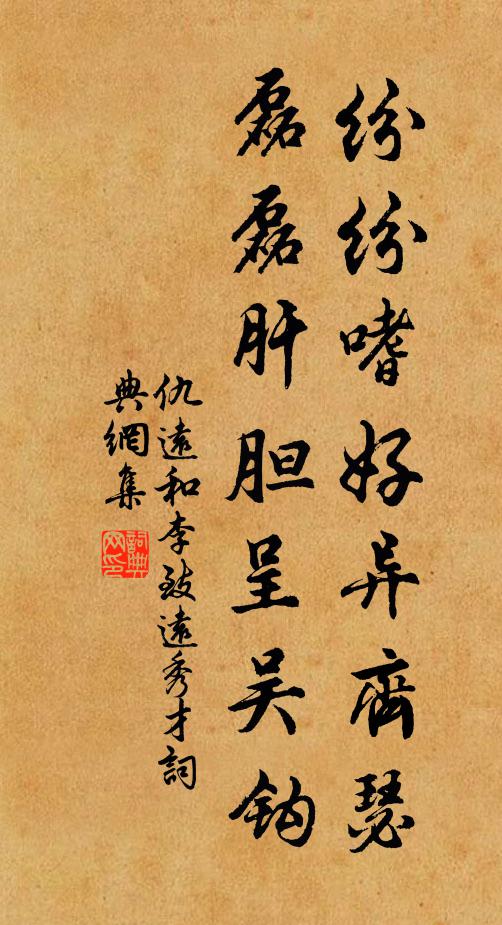 纷纷嗜好异齊瑟
磊磊肝胆呈吴钩
仇遠和李致遠秀才詞
典網集
詞典网印